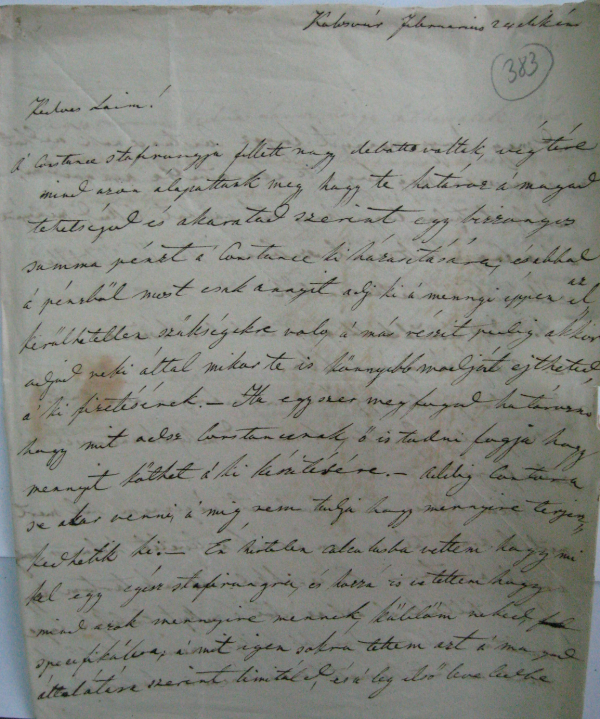 Kolosvár Februarius 24dikén
383
Kedves Laim!
A Constance stafirungja fellett nagy debatte voltak, végtére
mind azon alapattunk meg hogy te határoz á magad
tehetséged és akaratad szerint egy bizzonyos
summa pénzt á Constance ki házasitására, és ebböl
á pénzböl most csak annyit adj ki á mennyi éppen az el
kerülhetetlen szükségekre valo á más részit pedig akkor
adjad neki által mikor te is könnyebb modjárt ejtheted
á ki fizetésének. — Ha egyszer meg fogod határozni
hogy mit adsz Constancenak, ö is tudni fogja hogy
mennyit költhet á ki készitésére. — addig Contora
se akar venni, á mig nem tudja hogy mennyire terjesz„
kedhetik ki. — Én hirtelen calculusba vettem hogy mi
kel egy egész stafirungra, és hozzá is vetettem hogy
mind azok mennyire mennek, küldöm neked
specifikálva, á mit igen sokra tettem azt á magad
által látása szerint limitálod, és á leg elsö leveledbe